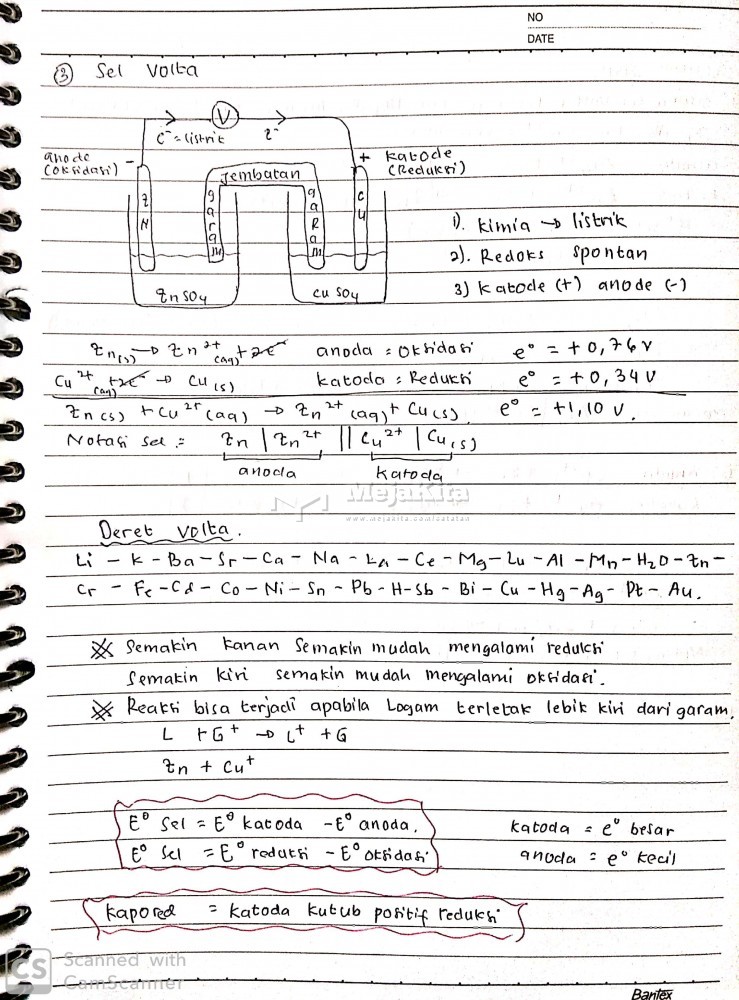 NO
DATE
③ Sel Volta
V
e⁻ = listrik e⁻
anode - + Katode
(Oksidasi) (Reduksi)
Jembatan
ZN garam garam CU
ZnSO₄ CuSO₄
1). Kimia → listrik
2). Redoks spontan
3) Katode (+) anode (-)
Zn(s) → Zn²⁺(aq) + 2e⁻ anoda = Oksidasi e° = +0,76 V
Cu²⁺(aq) + 2e⁻ → Cu(s) katoda = Reduksi e° = +0,34 V
Zn(s) + Cu²⁺(aq) → Zn²⁺(aq) + Cu(s). e° = +1,10 V.
Notasi sel = Zn | Zn²⁺ || Cu²⁺ | Cu(s)
anoda katoda
MejaKita
www.mejakita.com/catatan
Deret volta.
Li - K - Ba - Sr - Ca - Na - La - Ce - Mg - Lu - Al - Mn - H₂O - Zn -
Cr - Fe - Cd - Co - Ni - Sn - Pb - H - Sb - Bi - Cu - Hg - Ag - Pt - Au.
※ Semakin kanan semakin mudah mengalami reduksi
Semakin kiri semakin mudah mengalami oksidasi.
※ Reaksi bisa terjadi apabila Logam terletak lebih kiri dari garam.
L + G⁺ → L⁺ + G
Zn + Cu⁺
E° Sel = E° katoda - E° anoda. katoda = e° besar
E° Sel = E° reduksi - E° oksidasi anoda = e° kecil
Kapored = katoda kutub positif reduksi
CS Scanned with
CamScanner
Bantex